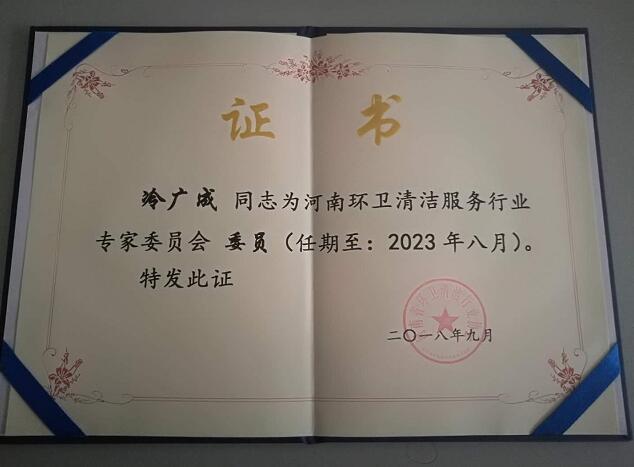 证 书
冷广成 同志为河南环卫清洁服务行业
专家委员会 委员 (任期至：2023年八月)。
特发此证
二〇一八年九月